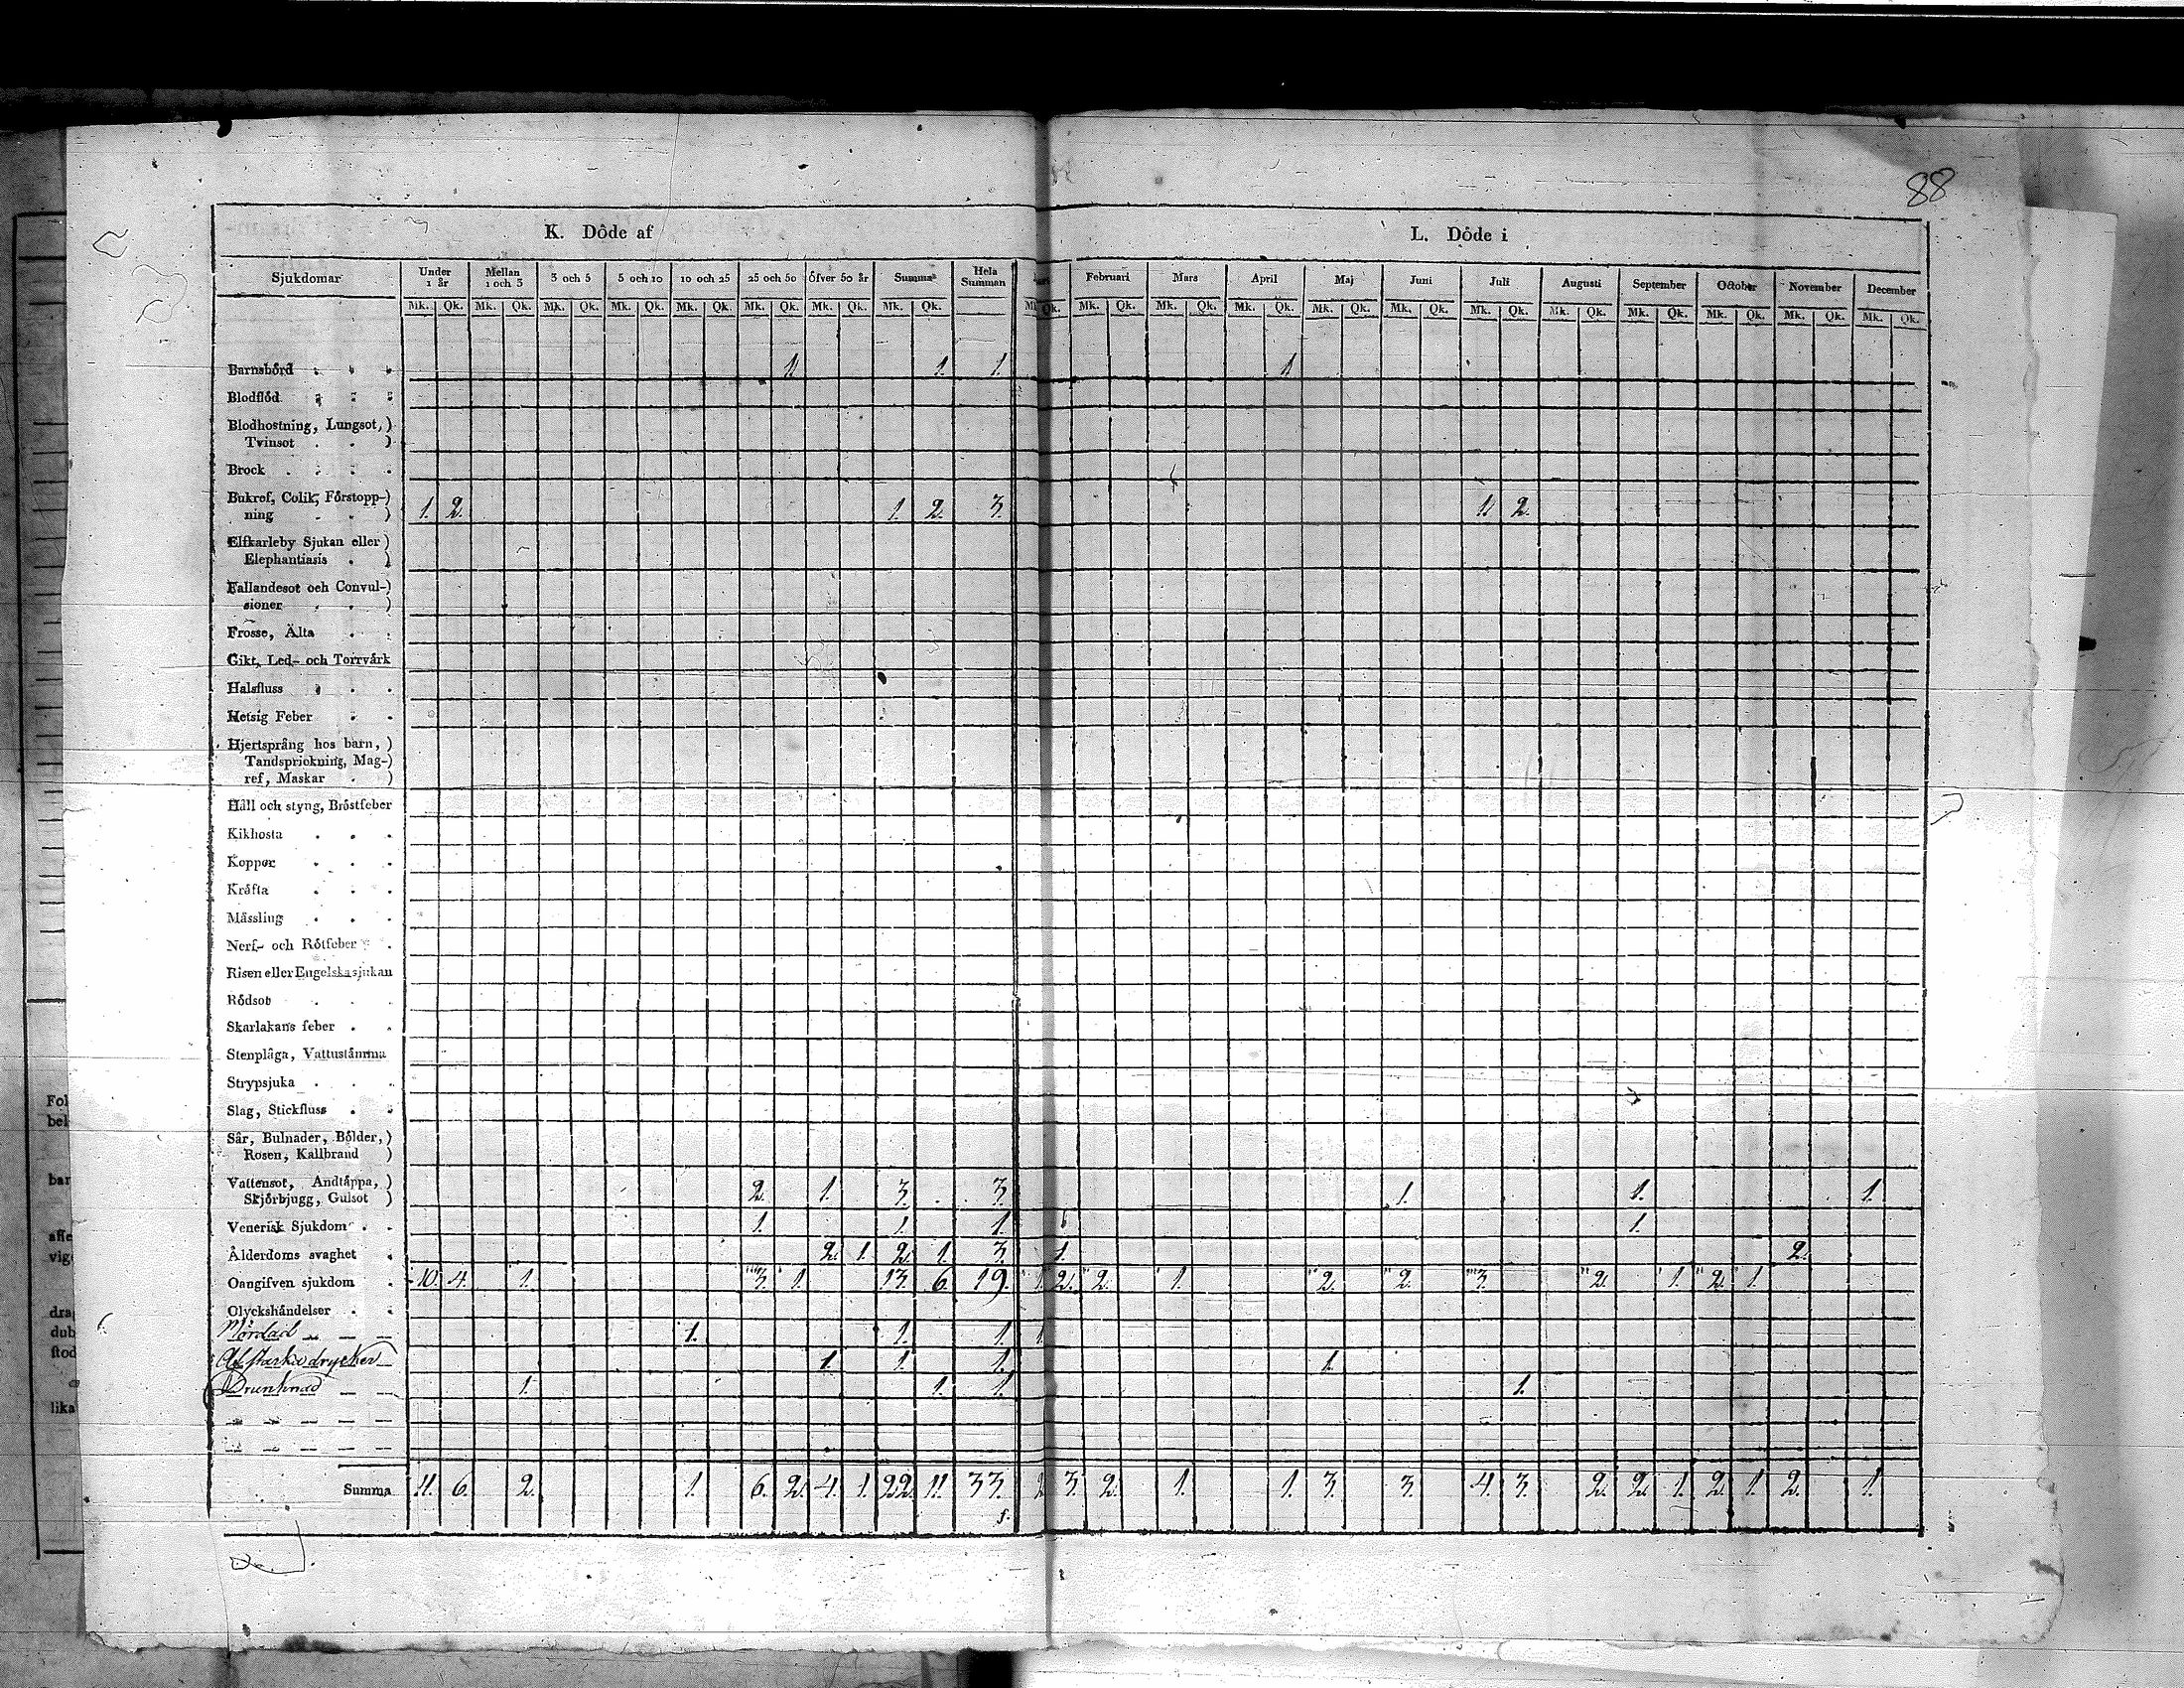 88
K. Döde af
L. Döde i
Sjukdomar Under 1 år Mellan 1 och 3 3 och 5 5 och 10 10 och 25 25 och 50 öfver 50 år Summa Hela Summan Februari Mars April Maj Juni Juli Augusti September October November December
Mk. Qk. Mk. Qk. Mk. Qk. Mk. Qk. Mk. Qk. Mk. Qk. Mk. Qk. Mk. Qk. Qk. Mk. Qk. Mk. Qk. Mk. Qk. Mk. Qk. Mk. Qk. Mk. Qk. Mk. Qk. Mk. Qk. Mk. Qk. Mk. Qk. Mk. Qk.
Barnsbörd 1. 1. 1. 1.
Blodflöd
Blodhostning, Lungsot,)
Tvinsot . . )
Brock
Bukref, Colik, Förstopp-)
ning . . ) 1. 2. 1. 2. 3. 1. 2.
Elfkarleby Sjukan eller )
Elephantiasis . )
Fallandesot och Convul-)
sioner . . )
Frosse, Älta
Gikt, Led- och Torrvärk
Halsfluss
Hetsig Feber
Hjertsprång hos barn, )
Tandsprickning, Mag-)
ref, Maskar . )
Håll och styng, Bröstfeber
Kikhosta
Koppor
Kräfta
Mässling
Nerf- och Rötfeber
Risen eller Engelska sjukan
Rödsot
Skarlakans feber
Stenplåga, Vattustämma
Strypsjuka
Slag, Stickfluss
Sår, Bulnader, Bölder, )
Rosen, Kallbrand )
Vattensot, Andtäppa, )
Skjörbjugg, Gulsot ) 2. 1. 3. 3. 1. 1. 1.
Venerisk Sjukdom 1. 1. 1. 1.
Ålderdoms svaghet 2. 1. 2. 1. 3. 1. 2.
Oangifven sjukdom 10. 4. 1. 3. 1. 13. 6. 19. 1. 2. 2. 1. 2. 2. 3. 2. 1. 2. 1.
Olyckshändelser
Mördad 1. 1. 1. 1.
Af starka drycker 1. 1. 1. 1.
Drunknad 1. 1. 1. 1.
Summa 11. 6. 2. 1. 6. 2. 4. 1. 22. 11. 33. 2. 3. 2. 1. 1. 3. 3. 4. 3. 2. 2. 1. 2. 1. 2. 1.